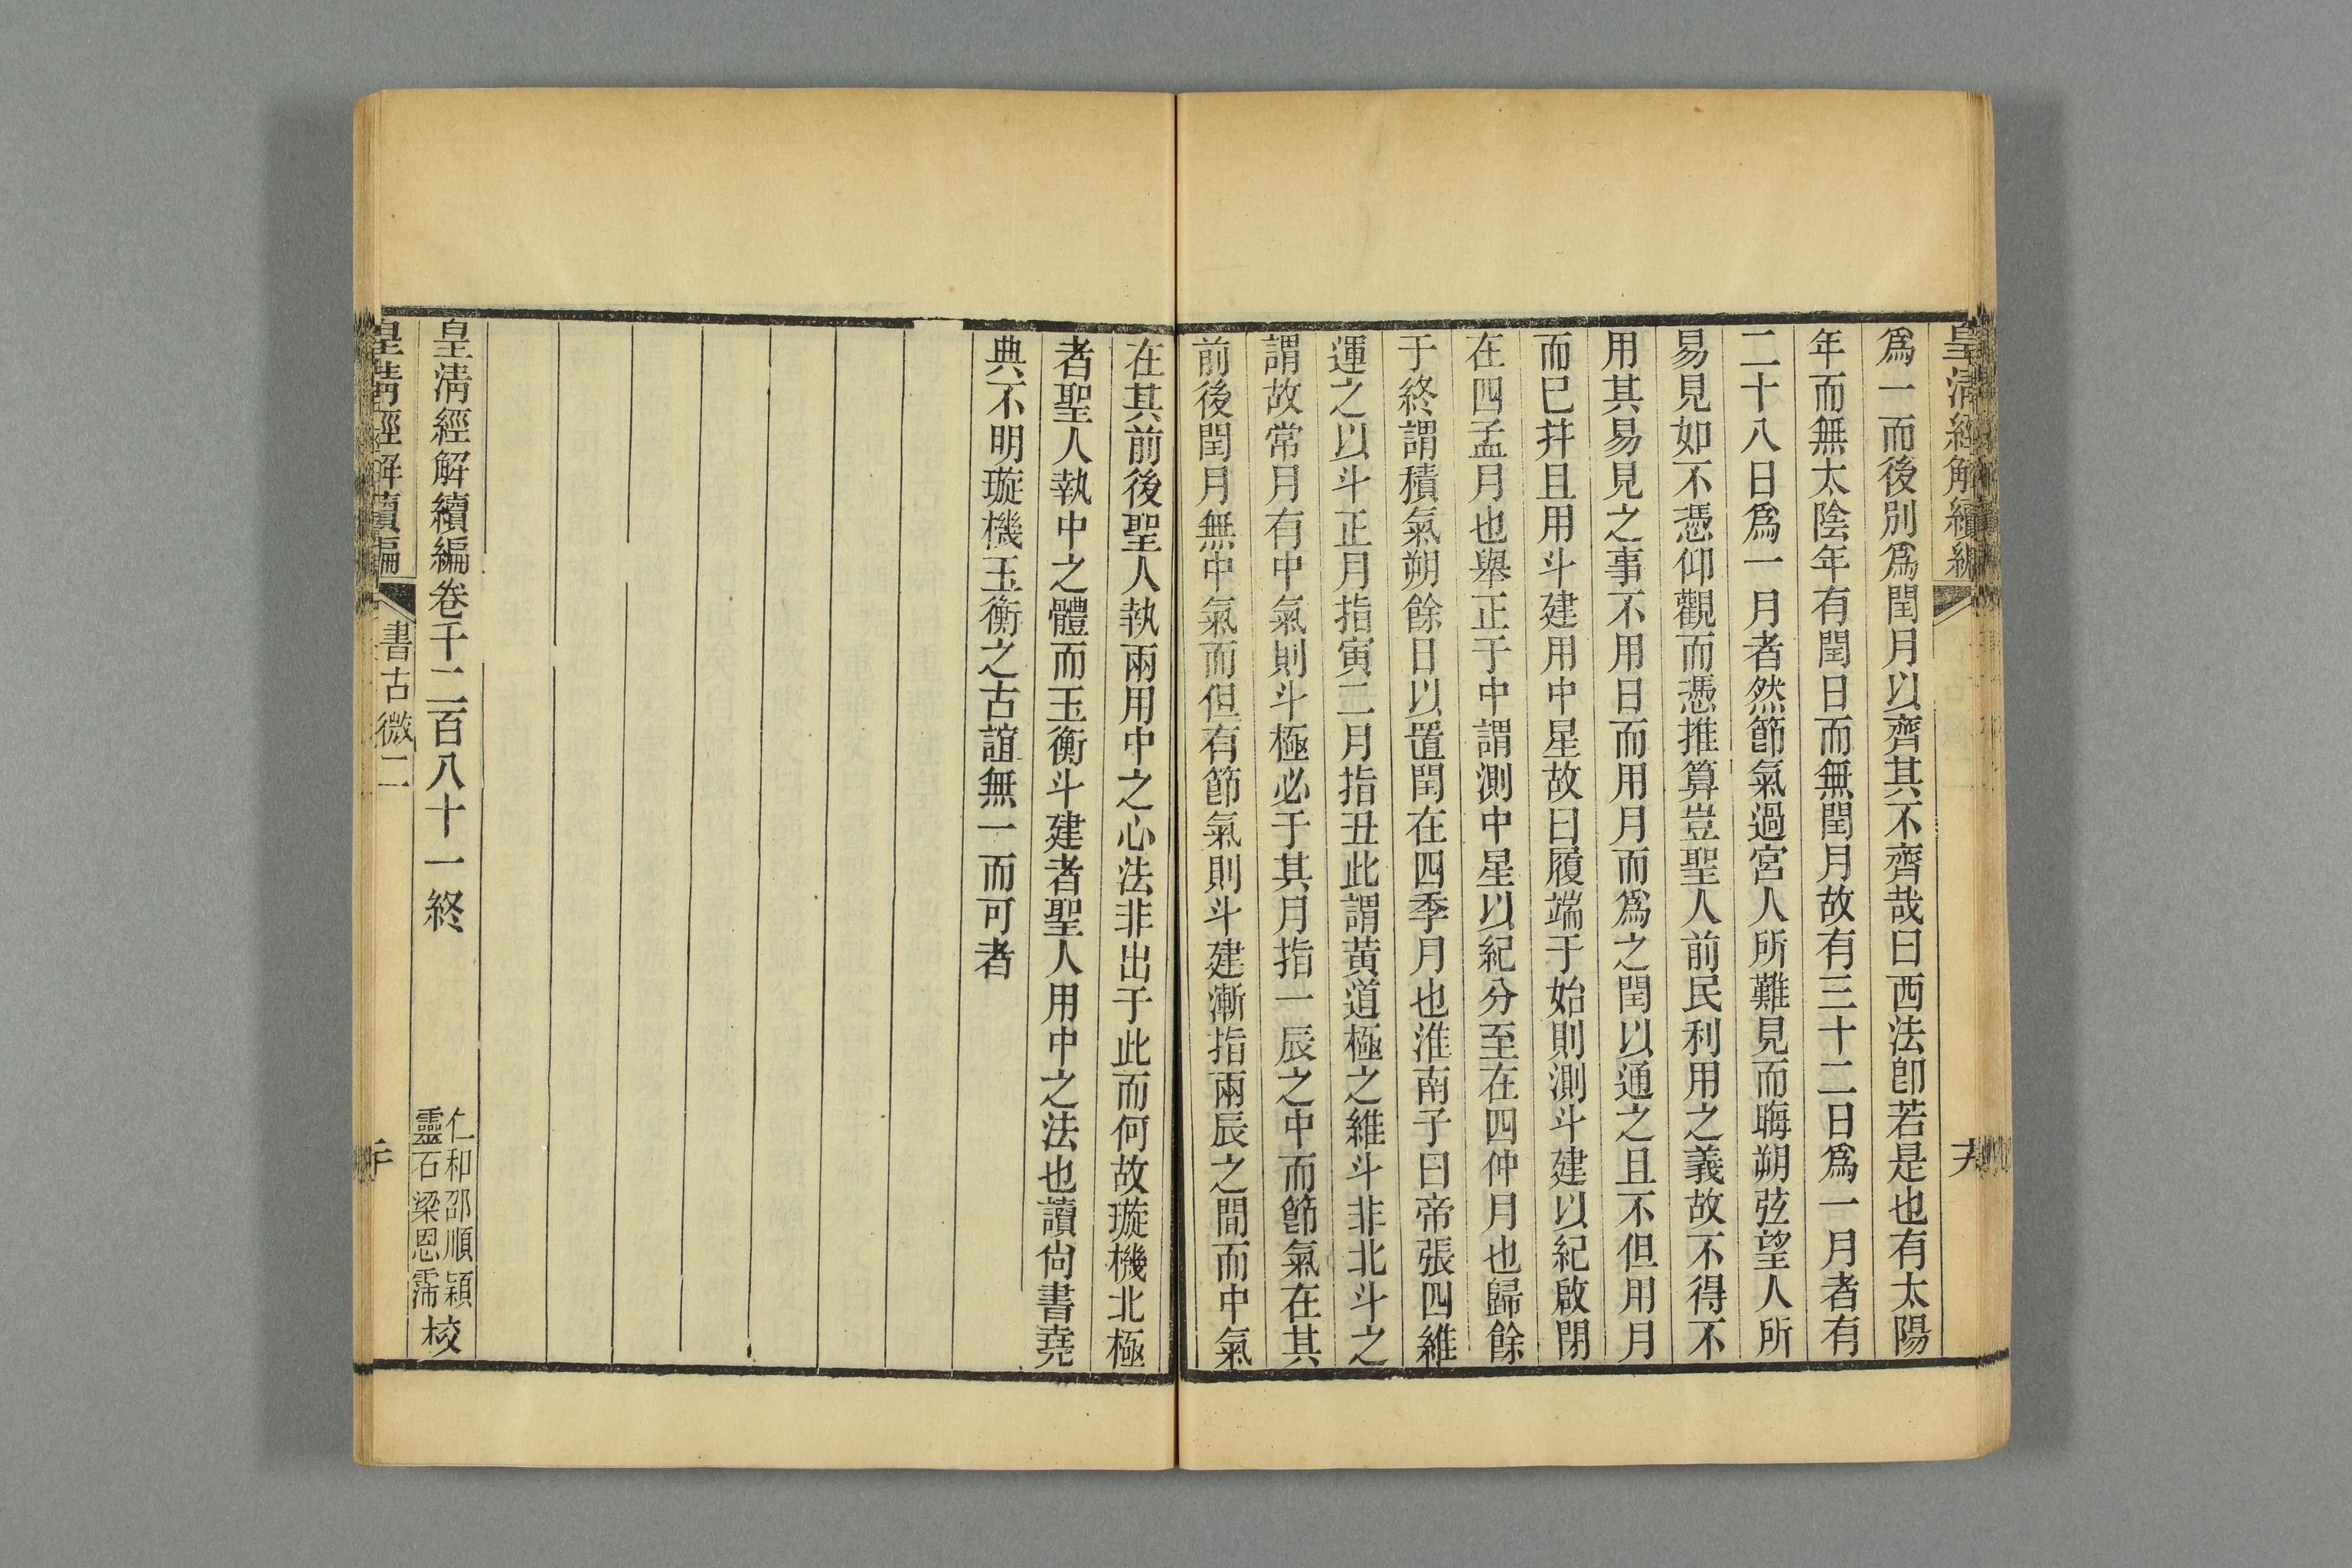 皇清經解續編
爲一而後別爲閏月以齊其不齊哉曰西法卽若是也有太陽
年而無太陰年有閏日而無閏月故有三十二日爲一月者有
二十八日爲一月者然節氣過宮人所難見而晦朔弦望人所
易見如不憑仰觀而憑推算豈聖人前民利用之義故不得不
用其易見見之事不用日而用月而爲之閏以通之且不但用月
而已幷且用斗建用中星故曰履端于始則測斗建以紀啟閉
在四孟月也舉正于中謂測中星以紀分至在四仲月也歸餘
于終謂積氣朔餘日以置閏在四季月也淮南子曰帝張四維
運之以斗正月指寅二月指丑此謂黃道極之維斗非北斗之
謂故常月有中氣則斗極必于其月指一辰之中而節氣在其
前後閏月無中氣而但有節氣則斗建漸指兩辰之間而中氣
在其前後聖人執兩用中之心法非出于此而何故璇機北極
者聖人執中之體而玉衡斗建者聖人用中之法也讀尙書堯
典不明璇機玉衡之古誼無一而可者
皇清經解續編卷千二百八十一終
仁和邵順穎
靈石梁恩霈校
皇清經解續編
書古微二